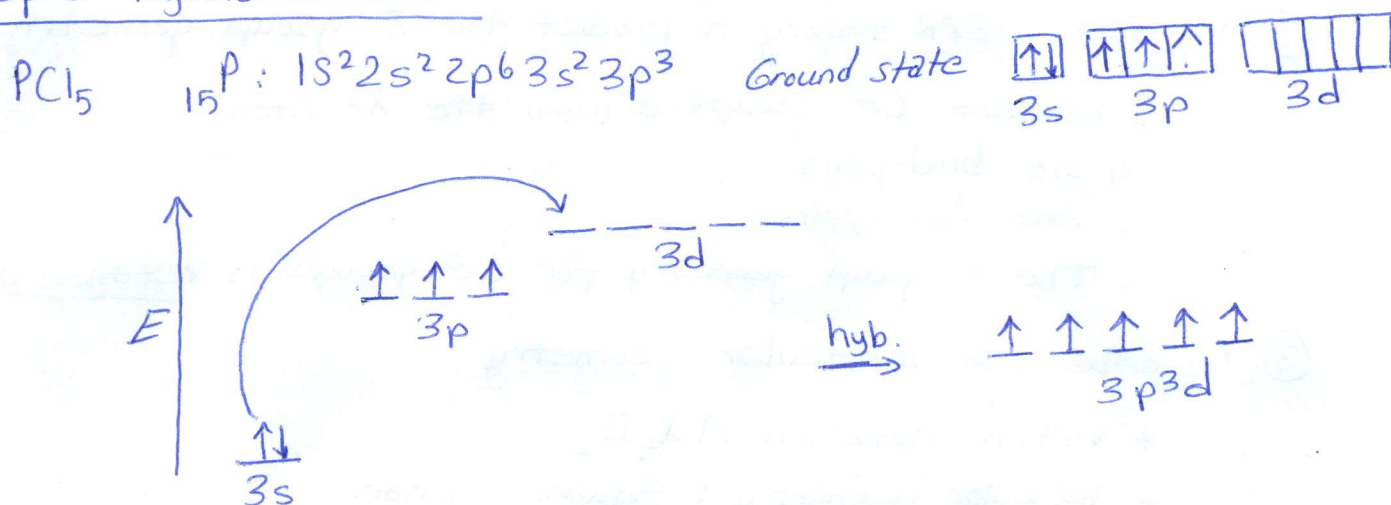 PCl₅ ₁₅P: 1s² 2s² 2p⁶ 3s² 3p³ Ground state ↑↓ ↑ ↑ ↑
3s 3p 3d
3d
↑ ↑ ↑
3p
E
hyb.
↑ ↑ ↑ ↑ ↑
3p³d
↑↓
3s